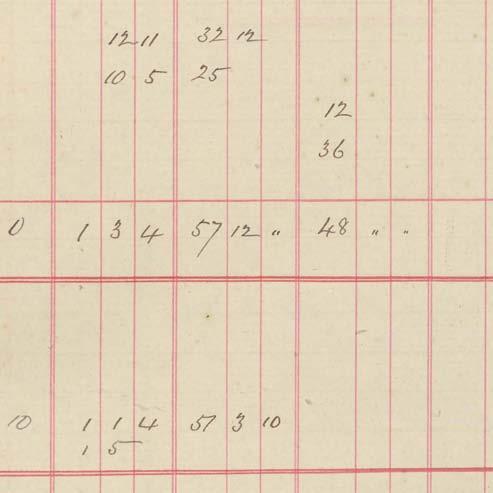 12 11 32 12
10 5 25
12
36
0 1 3 4 57 12 " 48 " "
10 1 1 4 51 3 10
1 5